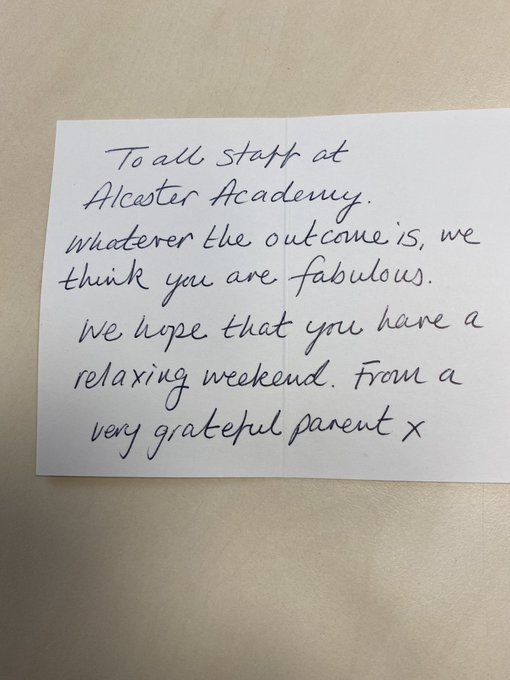 To all staff at
Alcester Academy.
Whatever the outcome is, we
think you are fabulous.
We hope that you have a
relaxing weekend. From a
very grateful parent x